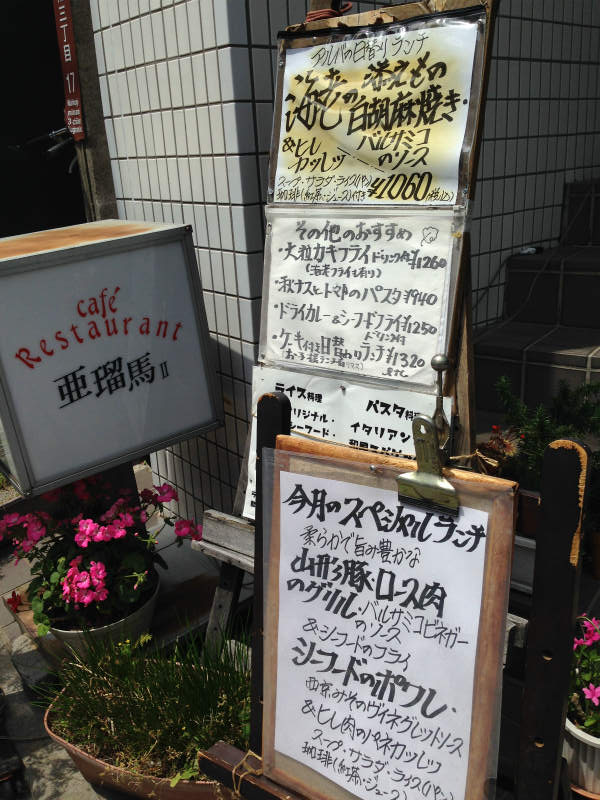 三丁目
17
café
Restaurant
亜瑠馬 II
アルバの日替りランチ
海老の添えもの
白胡麻焼き・
バルサミコ
のソース
&ヒレ
カッレッ
スープ・サラダ・ライス(パン)
珈琲(紅茶・ジュース)付き
¥1060(税込)
その他のおすすめ
・大粒カキフライ ドリンク付¥1260
(海老フライも有り)
・秋ナスとトマトのパスタ¥940
・ドライカレー&シーフードフライ¥1250
ドリンク付
・ケーキ付き日替わりランチ¥1320
ライス料理
パスタ料理
イタリアン
今月のスペシャルランチ
柔らかで旨み豊かな
山形豚・ロース肉
のグリル・バルサミコビネガー
のソース
&シーフードのフライ
シーフードのポワレ・
西京みそのヴィネグレットソース
&ヒレ肉のパネカッレッ
スープ・サラダ・ライス(パン)
珈琲(紅茶・ジュース)